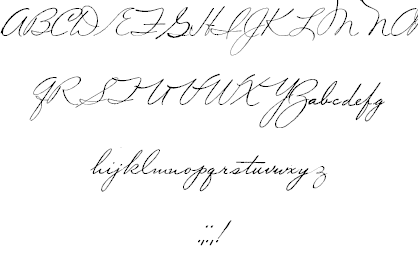 ABCDEFGHIJKLMNO
QRSTUVWXYZabcdefg
hijklmnopqrstuvwxyz
:;.,!